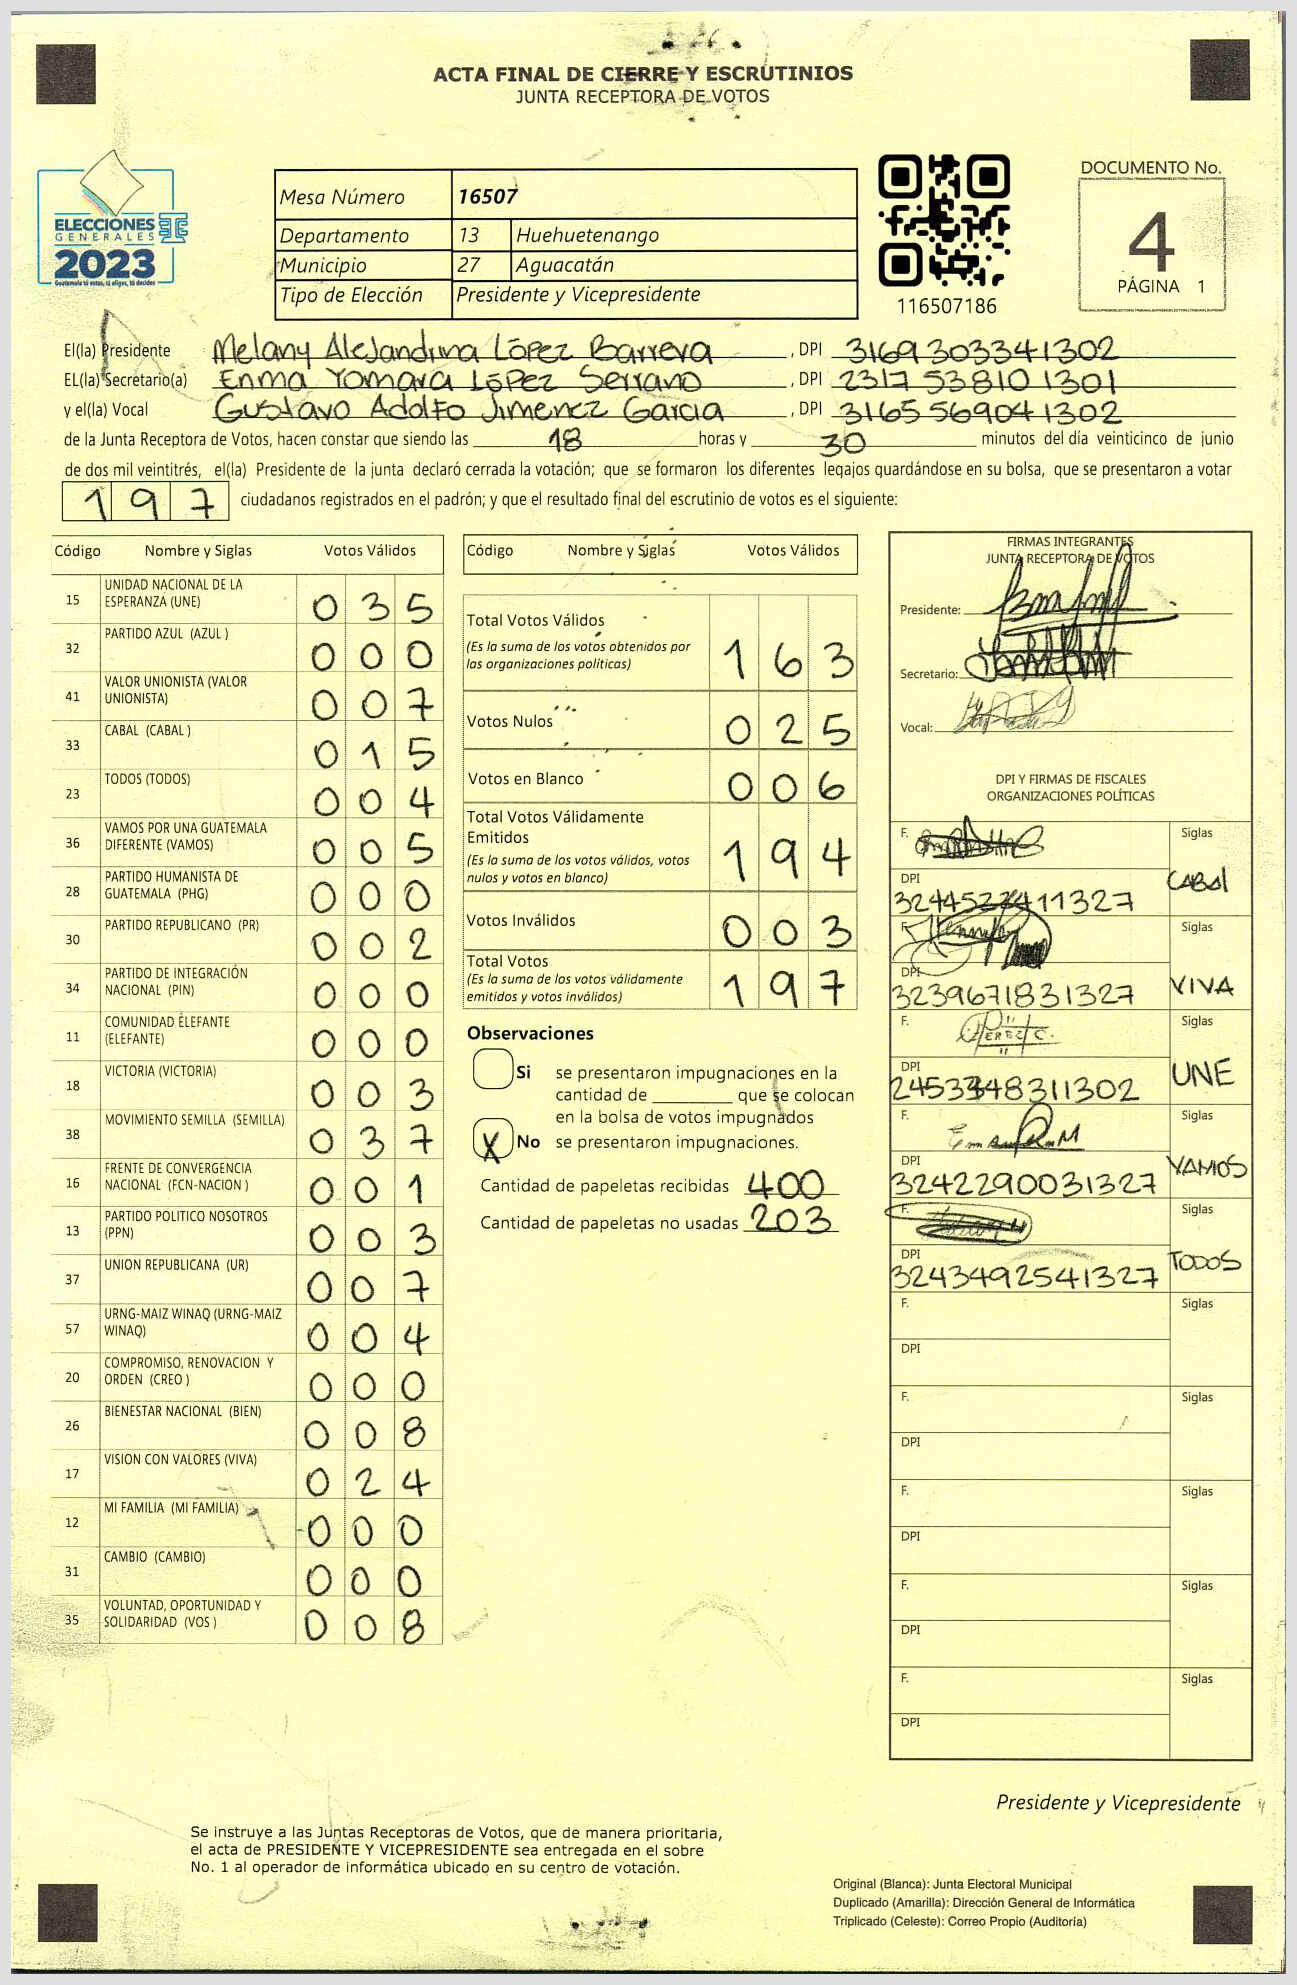 ACTA FINAL DE CIERRE Y ESCRUTINIOS
JUNTA RECEPTORA DE VOTOS
ELECCIONES
GENERALES
2023
Guatemala tú votas, tú eliges, tú decides
Mesa Número 16507
Departamento 13 Huehuetenango
Municipio 27 Aguacatán
Tipo de Elección Presidente y Vicepresidente
116507186
DOCUMENTO No.
4
PÁGINA 1
El(la) Presidente Melany Alejandrina López Barrera, DPI 3169303341302
EL(la) Secretario(a) Enma Yomara López Serrano, DPI 2317538101301
y el(la) Vocal Gustavo Adolfo Jimenez Garcia, DPI 3165569041302
de la Junta Receptora de Votos, hacen constar que siendo las 18 horas y 30 minutos del día veinticinco de junio
de dos mil veintitrés, el(la) Presidente de la junta declaró cerrada la votación; que se formaron los diferentes legajos guardándose en su bolsa, que se presentaron a votar
197 ciudadanos registrados en el padrón; y que el resultado final del escrutinio de votos es el siguiente:
Código Nombre y Siglas Votos Válidos
15 UNIDAD NACIONAL DE LA ESPERANZA (UNE) 035
32 PARTIDO AZUL (AZUL ) 000
41 VALOR UNIONISTA (VALOR UNIONISTA) 007
33 CABAL (CABAL ) 015
23 TODOS (TODOS) 004
36 VAMOS POR UNA GUATEMALA DIFERENTE (VAMOS) 005
28 PARTIDO HUMANISTA DE GUATEMALA (PHG) 000
30 PARTIDO REPUBLICANO (PR) 002
34 PARTIDO DE INTEGRACIÓN NACIONAL (PIN) 000
11 COMUNIDAD ELEFANTE (ELEFANTE) 000
18 VICTORIA (VICTORIA) 003
38 MOVIMIENTO SEMILLA (SEMILLA) 037
16 FRENTE DE CONVERGENCIA NACIONAL (FCN-NACION ) 001
13 PARTIDO POLITICO NOSOTROS (PPN) 003
37 UNION REPUBLICANA (UR) 007
57 URNG-MAIZ WINAQ (URNG-MAIZ WINAQ) 004
20 COMPROMISO, RENOVACION Y ORDEN (CREO ) 000
26 BIENESTAR NACIONAL (BIEN) 008
17 VISION CON VALORES (VIVA) 024
12 MI FAMILIA (MI FAMILIA) 000
31 CAMBIO (CAMBIO) 000
35 VOLUNTAD, OPORTUNIDAD Y SOLIDARIDAD (VOS ) 008
Código Nombre y Siglas Votos Válidos
Total Votos Válidos 163
(Es la suma de los votos obtenidos por
las organizaciones políticas)
Votos Nulos 025
Votos en Blanco 006
Total Votos Válidamente
Emitidos 194
(Es la suma de los votos válidos, votos
nulos y votos en blanco)
Votos Inválidos 003
Total Votos 197
(Es la suma de los votos válidamente
emitidos y votos inválidos)
Observaciones
Si se presentaron impugnaciones en la
cantidad de ________ que se colocan
en la bolsa de votos impugnados
X No se presentaron impugnaciones.
Cantidad de papeletas recibidas 400
Cantidad de papeletas no usadas 203
FIRMAS INTEGRANTES
JUNTA RECEPTORA DE VOTOS
Presidente:
Secretario:
Vocal:
DPI Y FIRMAS DE FISCALES
ORGANIZACIONES POLÍTICAS
F. Siglas
DPI CABAL
F. Siglas
DPI 3239671831327 VIVA
F. Siglas
DPI UNE
F. Siglas
DPI 3242290031327 VAMOS
F. Siglas
DPI 3243492541327 TODOS
F. Siglas
DPI
F. Siglas
DPI
F. Siglas
DPI
F. Siglas
DPI
F. Siglas
DPI
Presidente y Vicepresidente
Se instruye a las Juntas Receptoras de Votos, que de manera prioritaria,
el acta de PRESIDENTE Y VICEPRESIDENTE sea entregada en el sobre
No. 1 al operador de informática ubicado en su centro de votación.
Original (Blanca): Junta Electoral Municipal
Duplicado (Amarilla): Dirección General de Informática
Triplicado (Celeste): Correo Propio (Auditoría)